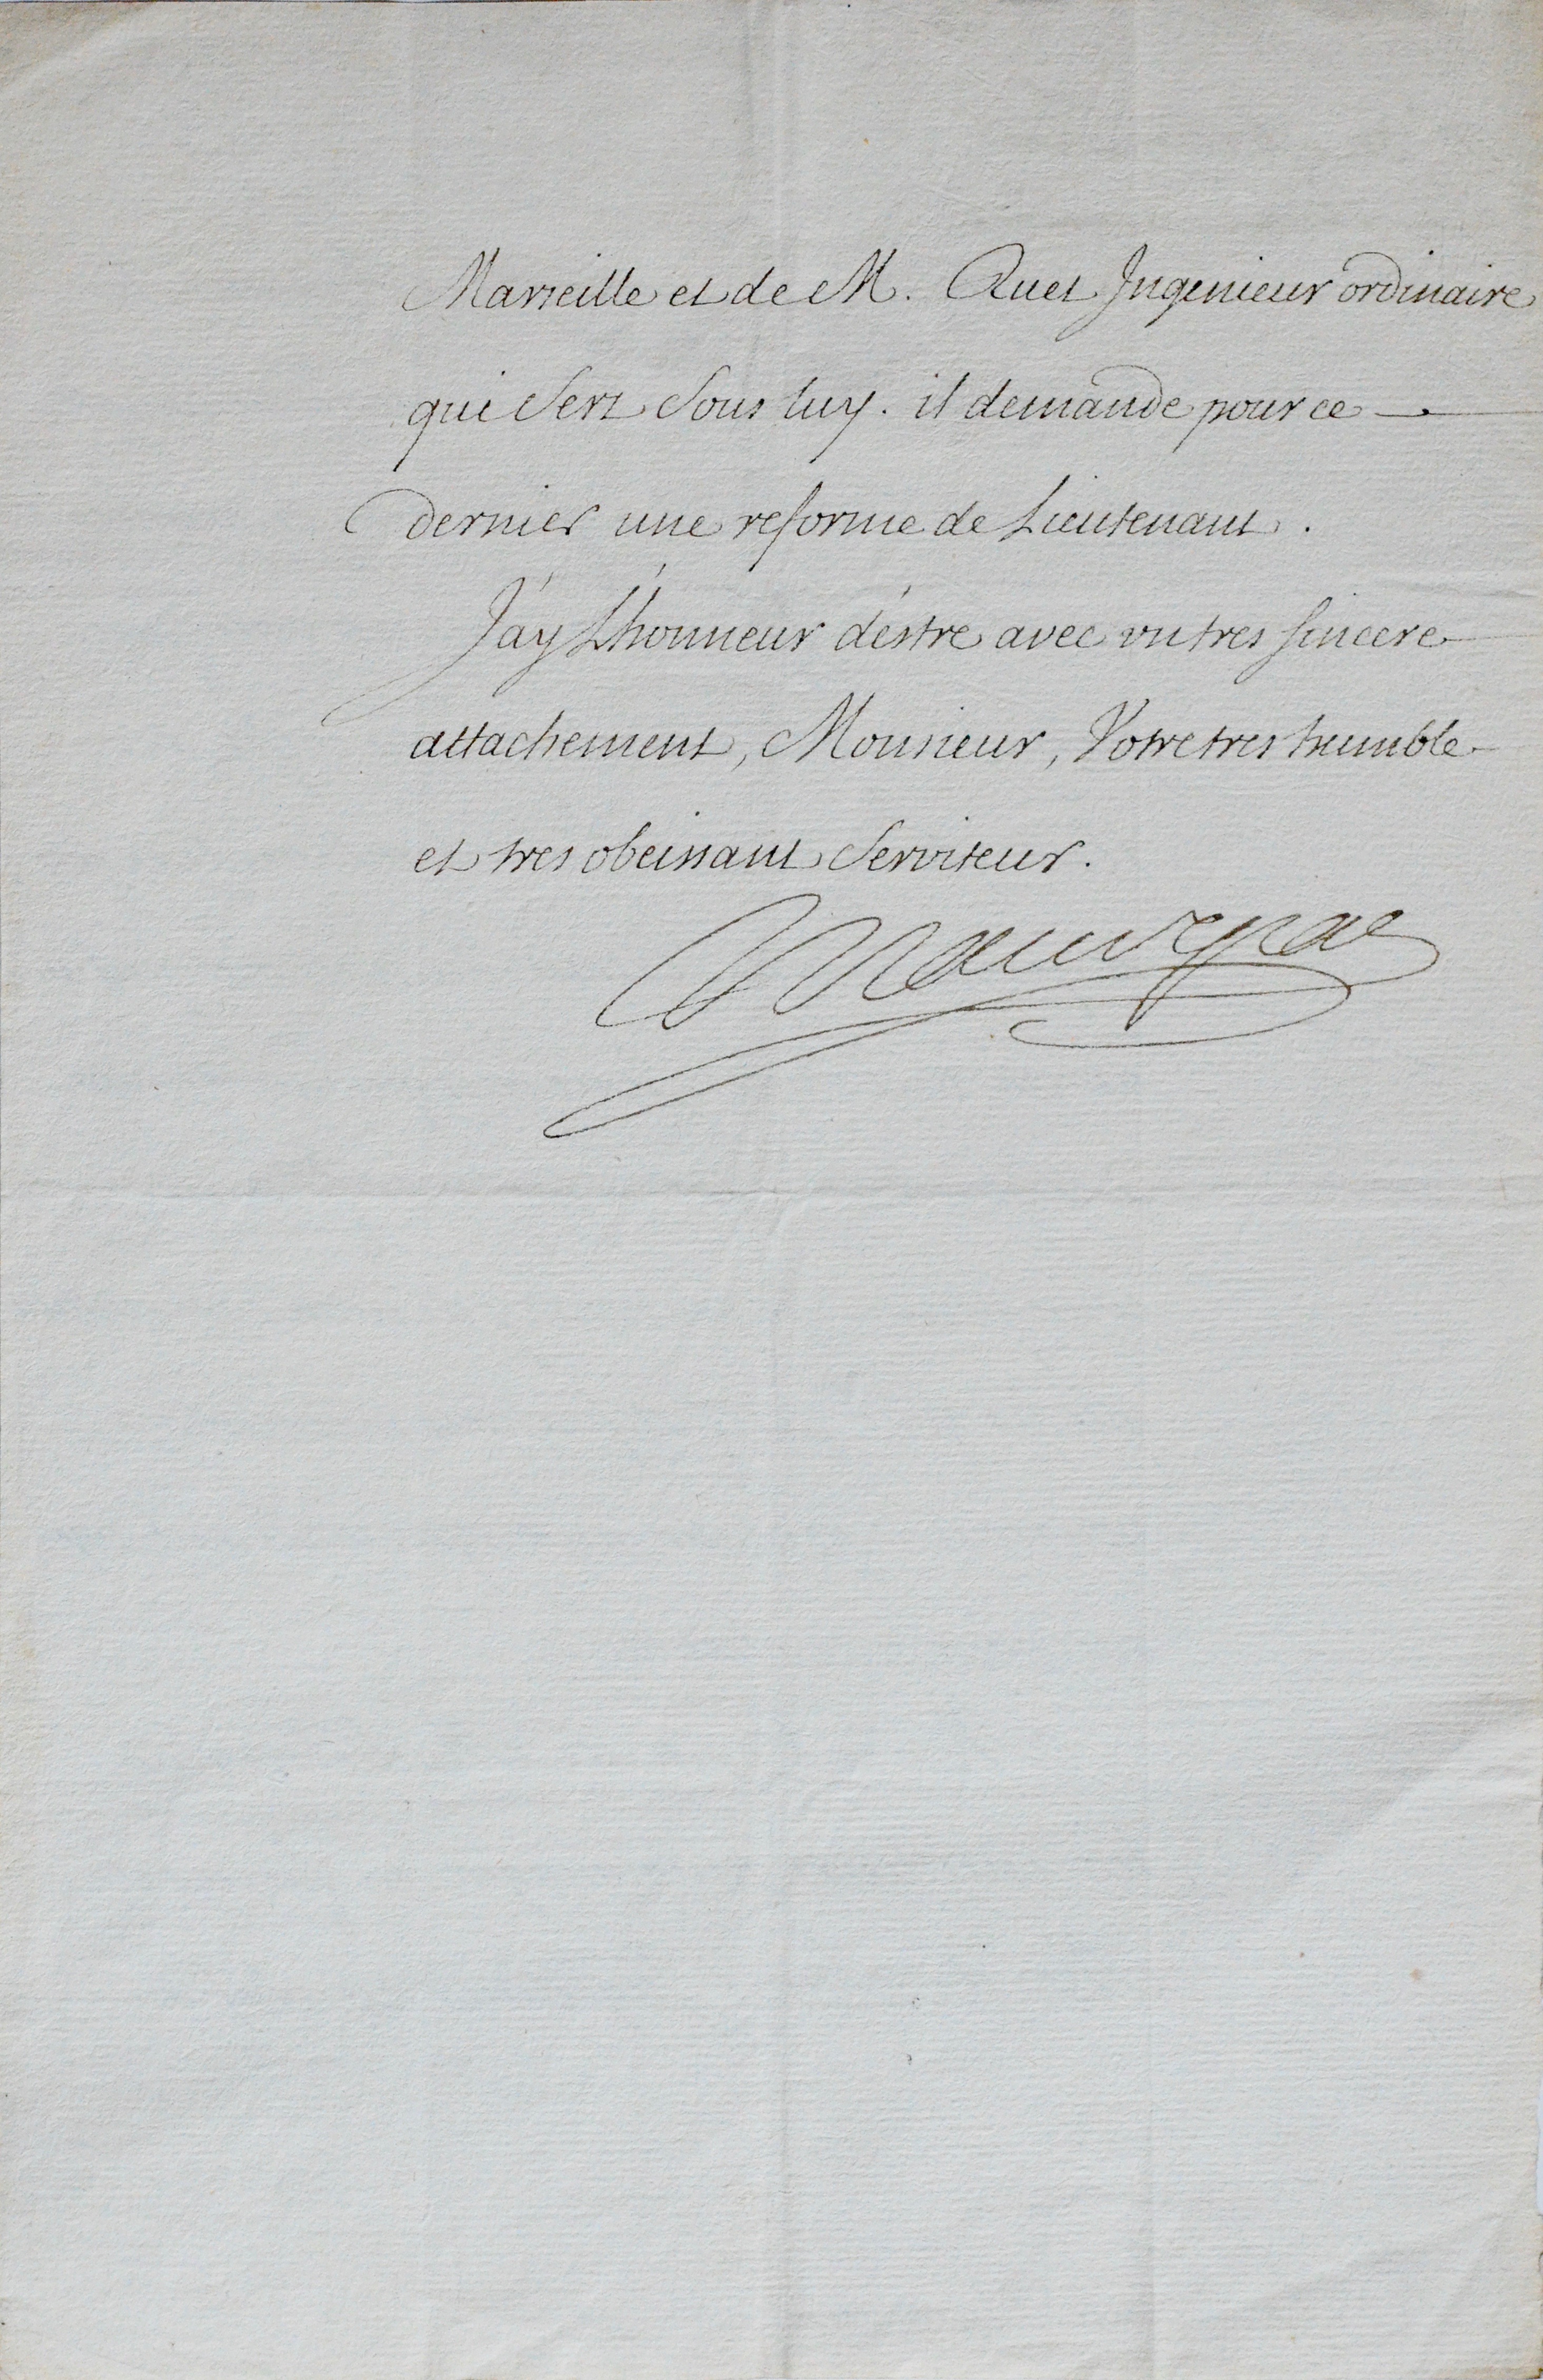 Marseille et de M. Quet Ingenieur ordinaire
qui sert sous luy. il demande pour ce
dernier une reforme de Lieutenant.
J'ay L'honneur d'estre avec un tres sincere
attachement, Monsieur, Votre tres humble
et tres obeissant Serviteur.
Maurepas